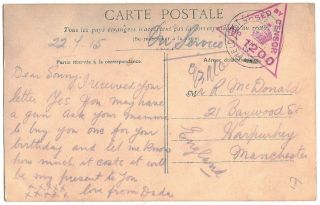 CARTE POSTALE
Tous les pays étrangers n'acceptent pas la correspondance
22.4.15 On Service
Partie réservée à la correspondance
PASSED BY CENSOR
1200
Dear Sonny. I received your
letter. Yes you may have
a gun. Ask your mamma
to buy you one for your
birthday and let me know
how much it costs it will
be my present to you
xxxx love from Dada
xxxx
Mr R McDonald
21 Baywood St
Harpurhey
Manchester
England